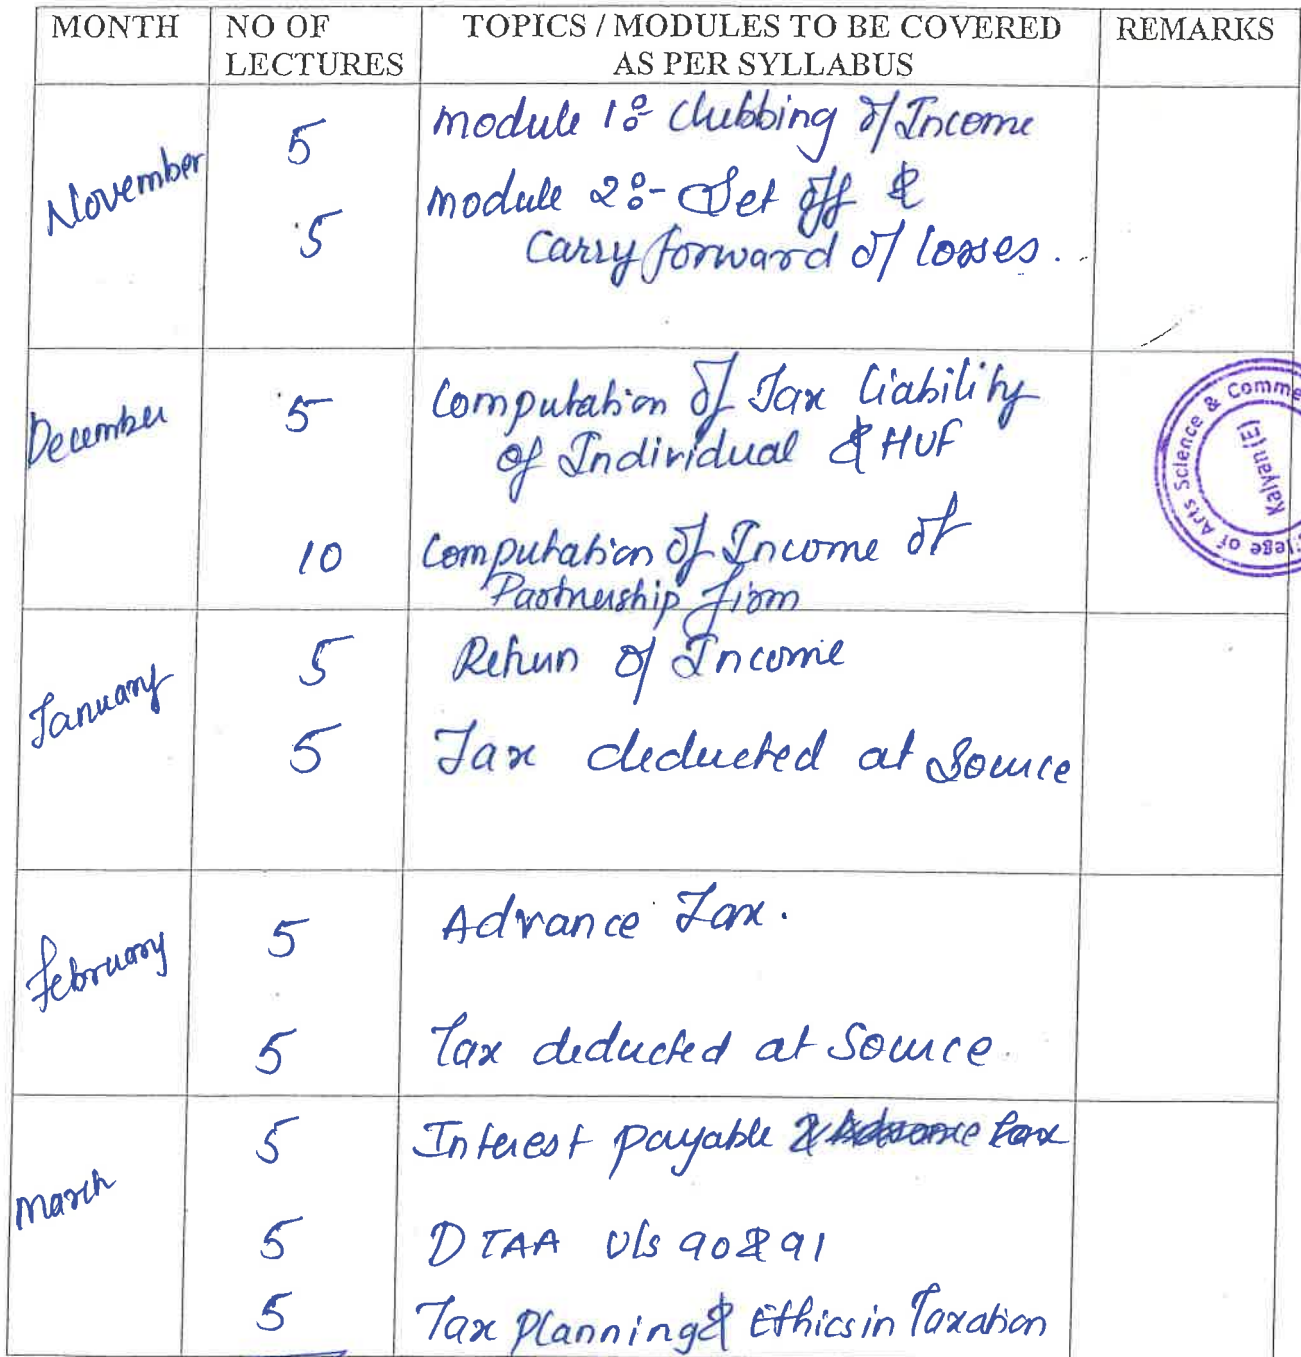 MONTH
NO OF
LECTURES
TOPICS / MODULES TO BE COVERED
AS PER SYLLABUS
REMARKS
November
5
module 1:- Clubbing of Income
5
module 2:- Set off &
Carry forward of losses.
December
5
Computation of Tax liability
of Individual & HUF
10
Computation of Income of
Partnership firm
January
5
Return of Income
5
Tax deducted at Source
February
5
Advance Tax.
5
Tax deducted at Source.
March
5
Interest payable & Advance tax
5
DTAA U/s 90&91
5
Tax Planning & Ethics in Taxation
llege of Arts Science & Comme
Kalyan (E)